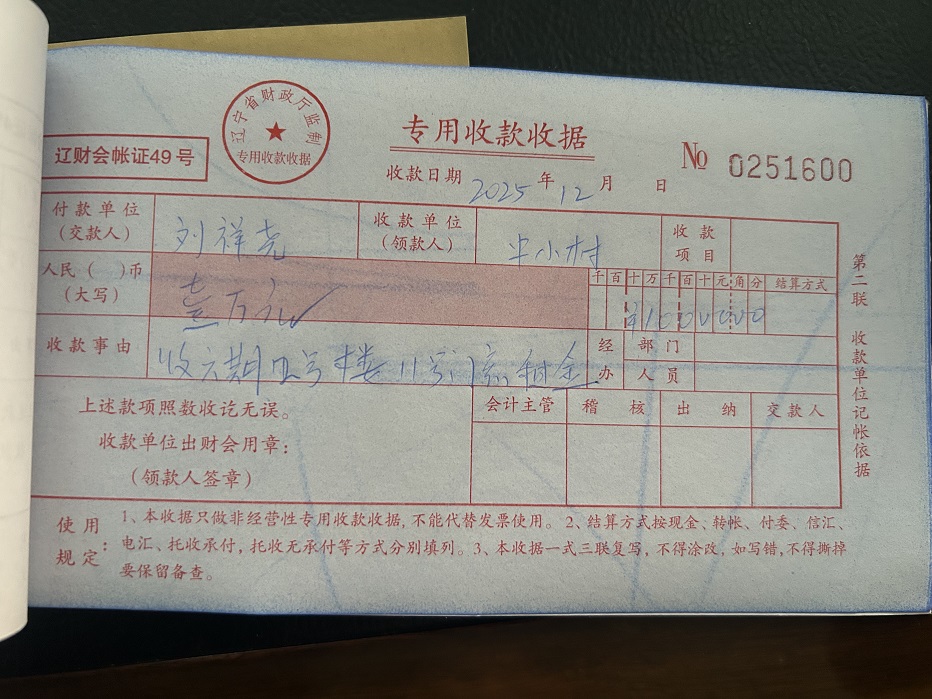 辽宁省财政厅监制
专用收款收据
专用收款收据
辽财会帐证49号
№ 0251600
收款日期 2025 年 12 月 日
付款单位 刘祥尧 收款单位 中小村 收款
(交款人) (领款人) 项目
人民( )币 壹万元 千百十万千百十元角分 结算方式
(大写) ¥1000000
收款事由 收六期四号楼11号门市租金 经办 部门
人员
上述款项照数收讫无误。 会计主管 稽核 出纳 交款人
收款单位出财会用章:
(领款人签章)
第二联 收款单位记帐依据
使用规定: 1、本收据只做非经营性专用收款收据,不能代替发票使用。2、结算方式按现金、转帐、付委、信汇、
电汇、托收承付,托收无承付等方式分别填列。3、本收据一式三联复写,不得涂改,如写错,不得撕掉
要保留备查。